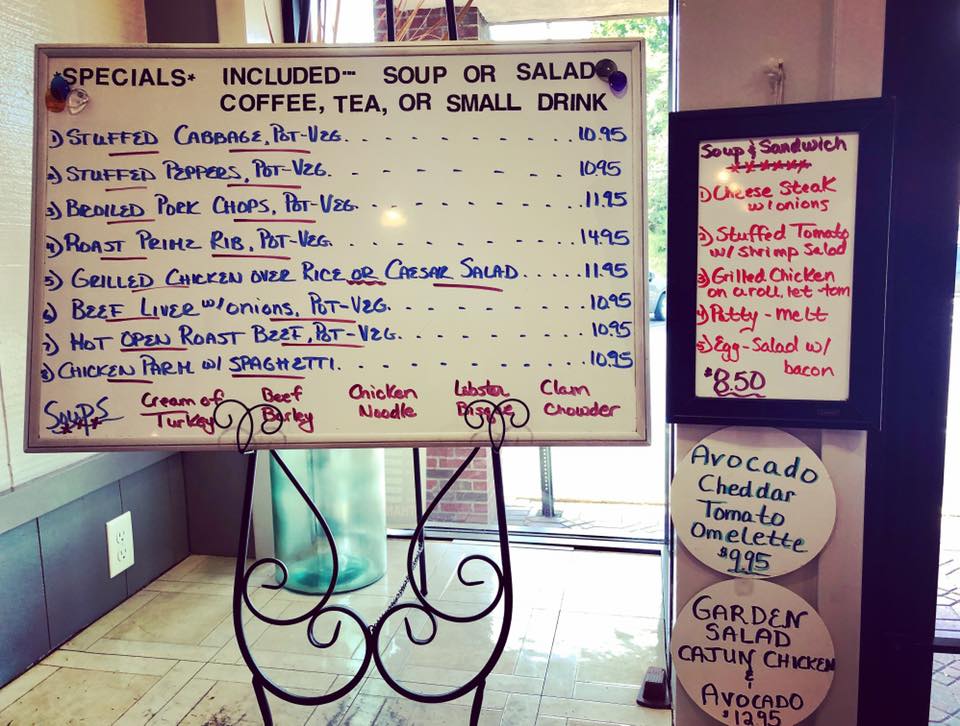 *SPECIALS* INCLUDED--- SOUP OR SALAD
COFFEE, TEA, OR SMALL DRINK
1) STUFFED CABBAGE, POT-VEG. . . . . . . . . . . 10.95
2) STUFFED PEPPERS, POT-VEG. . . . . . . . . . . 10.95
3) BROILED PORK CHOPS, POT-VEG. . . . . . . . . . 11.95
4) ROAST PRIME RIB, POT-VEG. . . . . . . . . . . 14.95
5) GRILLED CHICKEN OVER RICE OR CAESAR SALAD . . . . . . 11.95
6) BEEF LIVER W/ONIONS, POT-VEG. . . . . . . . . 10.95
7) HOT OPEN ROAST BEEF, POT-VEG. . . . . . . . . 10.95
8) CHICKEN PARM W/ SPAGHETTI. . . . . . . . . . . 10.95
SOUPS
Cream of Turkey
Beef Barley
Chicken Noodle
Lobster Bisque
Clam Chowder
Soup & Sandwich
1) Cheese Steak
w/onions
2) Stuffed Tomato
w/ Shrimp Salad
3) Grilled Chicken
on a roll, let-tom
4) Patty-melt
5) Egg-Salad w/
bacon
$8.50
Avocado
Cheddar
Tomato
Omelette
$9.95
GARDEN
SALAD
CAJUN CHICKEN
&
AVOCADO
$12.95